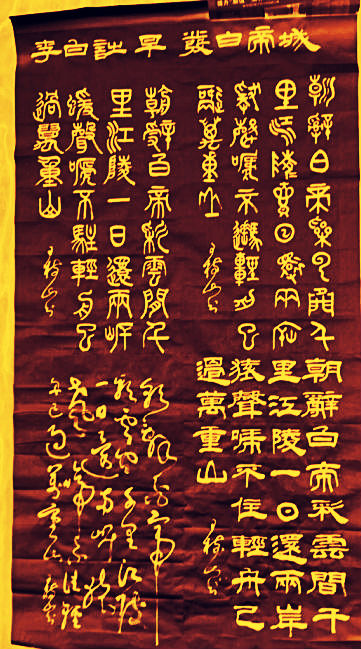 李白詩早發白帝城
朝辭白帝彩雲間千
里江陵一日還兩岸
猿聲啼不住輕舟已
過萬重山
朝辭白帝彩雲間千
里江陵一日還兩岸
猿聲啼不住輕舟已
過萬重山
朝辭白帝彩雲間千
里江陵一日還兩岸
猨聲嗁不駐輕舟已
過萬重山
朝辭白帝
彩雲間千里江陵
一日還兩岸猿
聲啼不住輕
舟已過萬重山